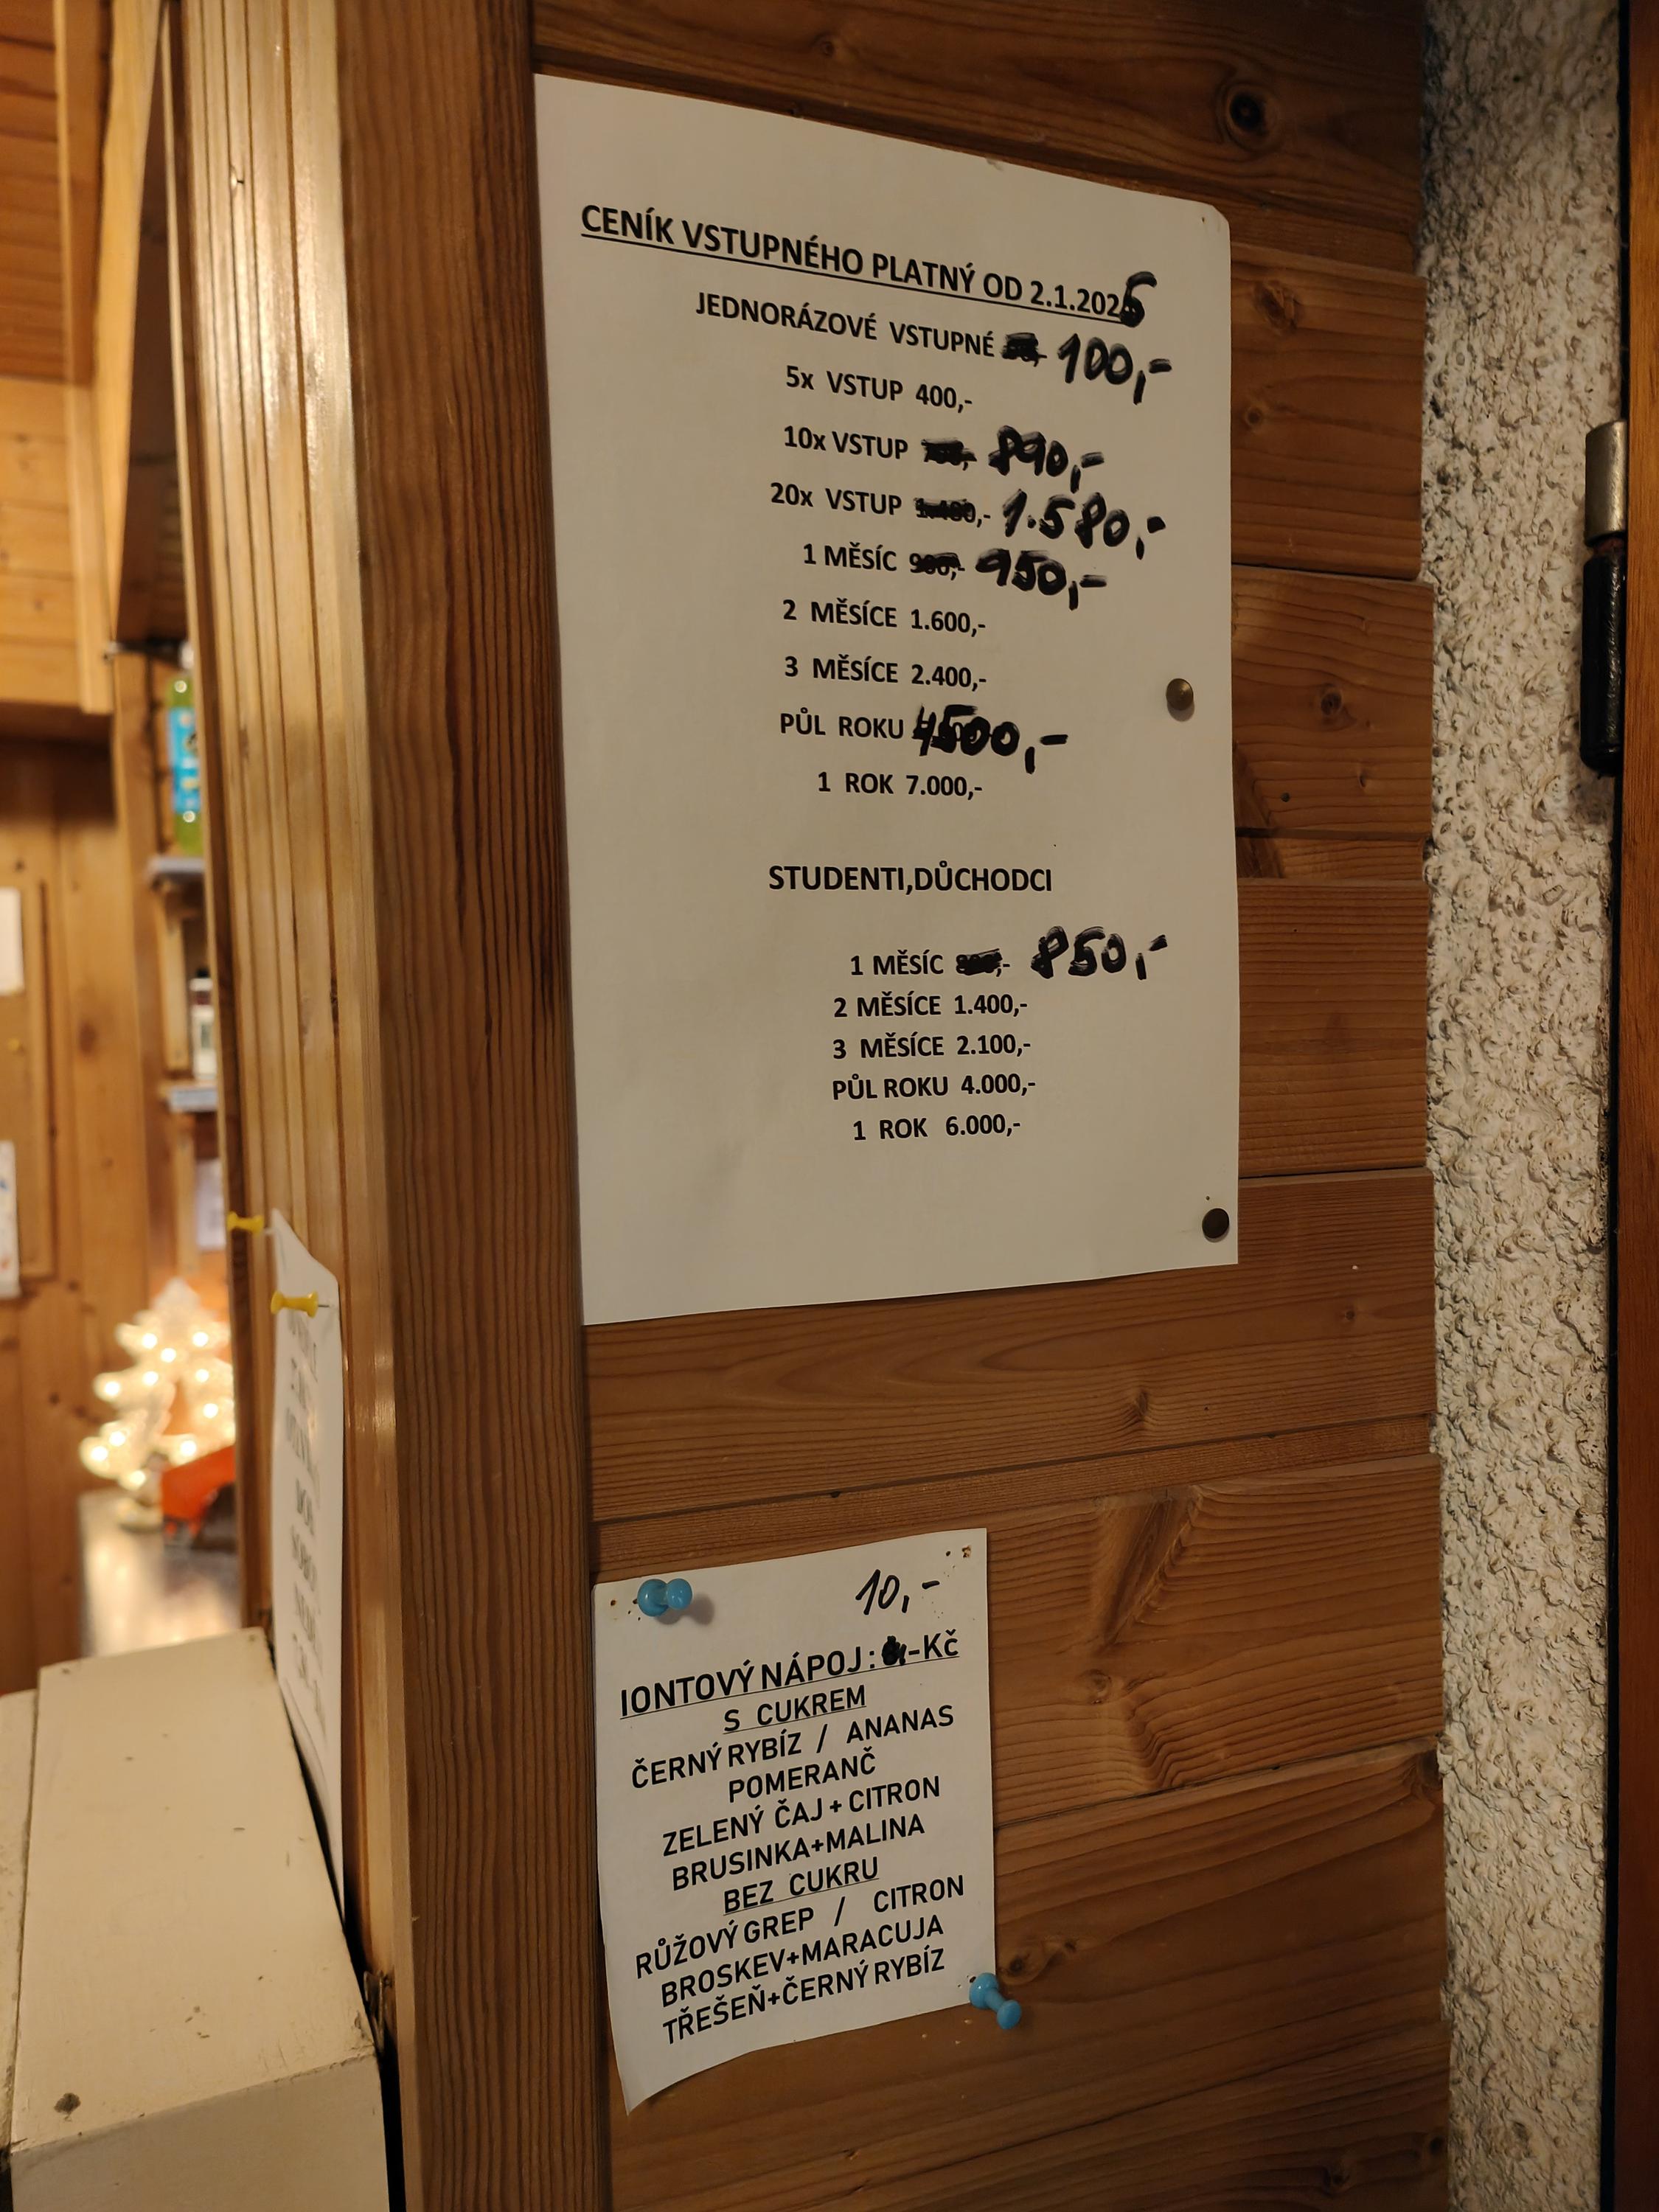 CENÍK VSTUPNÉHO PLATNÝ OD 2.1.2026
JEDNORÁZOVÉ VSTUPNÉ 100,-
5x VSTUP 400,-
10x VSTUP 890,-
20x VSTUP 1.580,-
1 MĚSÍC 950,-
2 MĚSÍCE 1.600,-
3 MĚSÍCE 2.400,-
PŮL ROKU 4500,-
1 ROK 7.000,-
STUDENTI,DŮCHODCI
1 MĚSÍC 850,-
2 MĚSÍCE 1.400,-
3 MĚSÍCE 2.100,-
PŮL ROKU 4.000,-
1 ROK 6.000,-
10,-
IONTOVÝ NÁPOJ: -Kč
S CUKREM
ČERNÝ RYBÍZ / ANANAS
POMERANČ
ZELENÝ ČAJ + CITRON
BRUSINKA+MALINA
BEZ CUKRU
RŮŽOVÝ GREP / CITRON
BROSKEV+MARACUJA
TŘEŠEŇ+ČERNÝ RYBÍZ